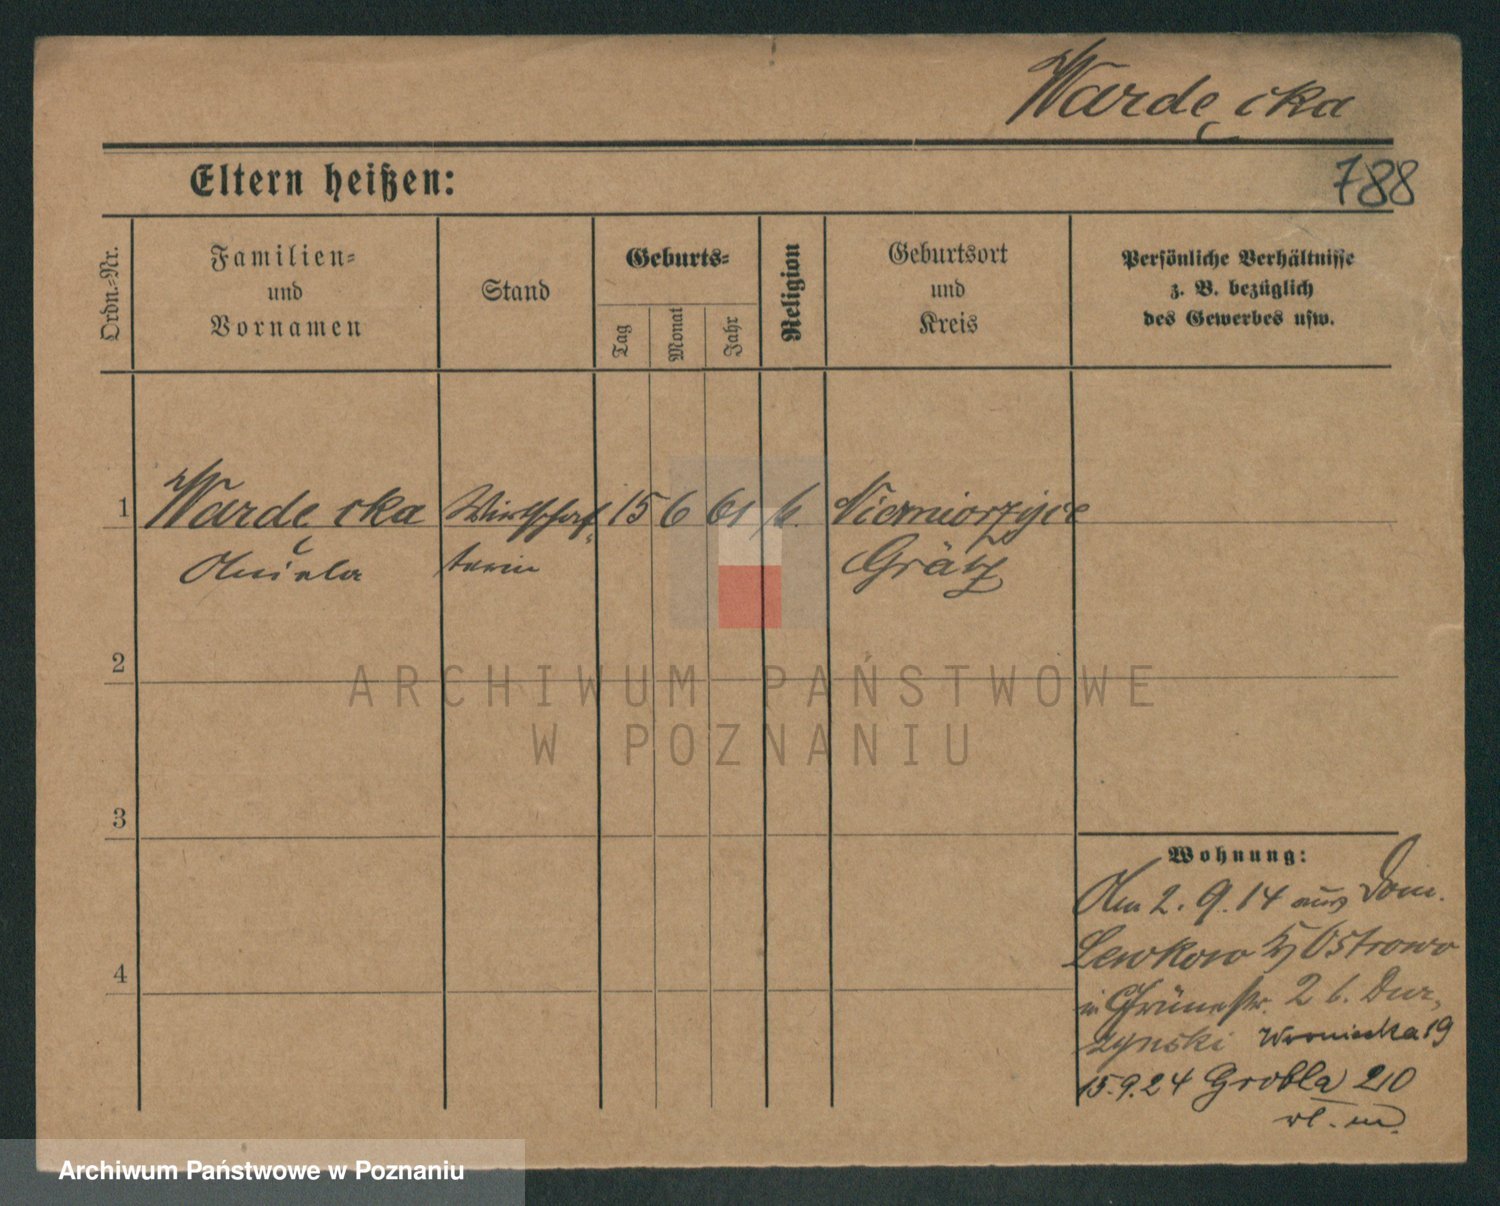 Wardęcka
788
Eltern heißen:
Ordn.-Nr.
Familien-
und
Vornamen
Stand
Geburts-
Tag
Monat
Jahr
Religion
Geburtsort
und
Kreis
Persönliche Verhältnisse
z. B. bezüglich
des Gewerbes usw.
1
Wardęcka
Aniela
Wirtschaf-
terin
15
6
61
k.
Niemierzyce
Grätz
2
ARCHIWUM PAŃSTWOWE
W POZNANIU
3
4
Wohnung:
Am 2.9.14 aus Dom.
Lewkowo Kr Ostrowo
in Grünestr. 2 b. Dur-
zynski Wroniecka 19
15.9.24 Grobla 20
Archiwum Państwowe w Poznaniu